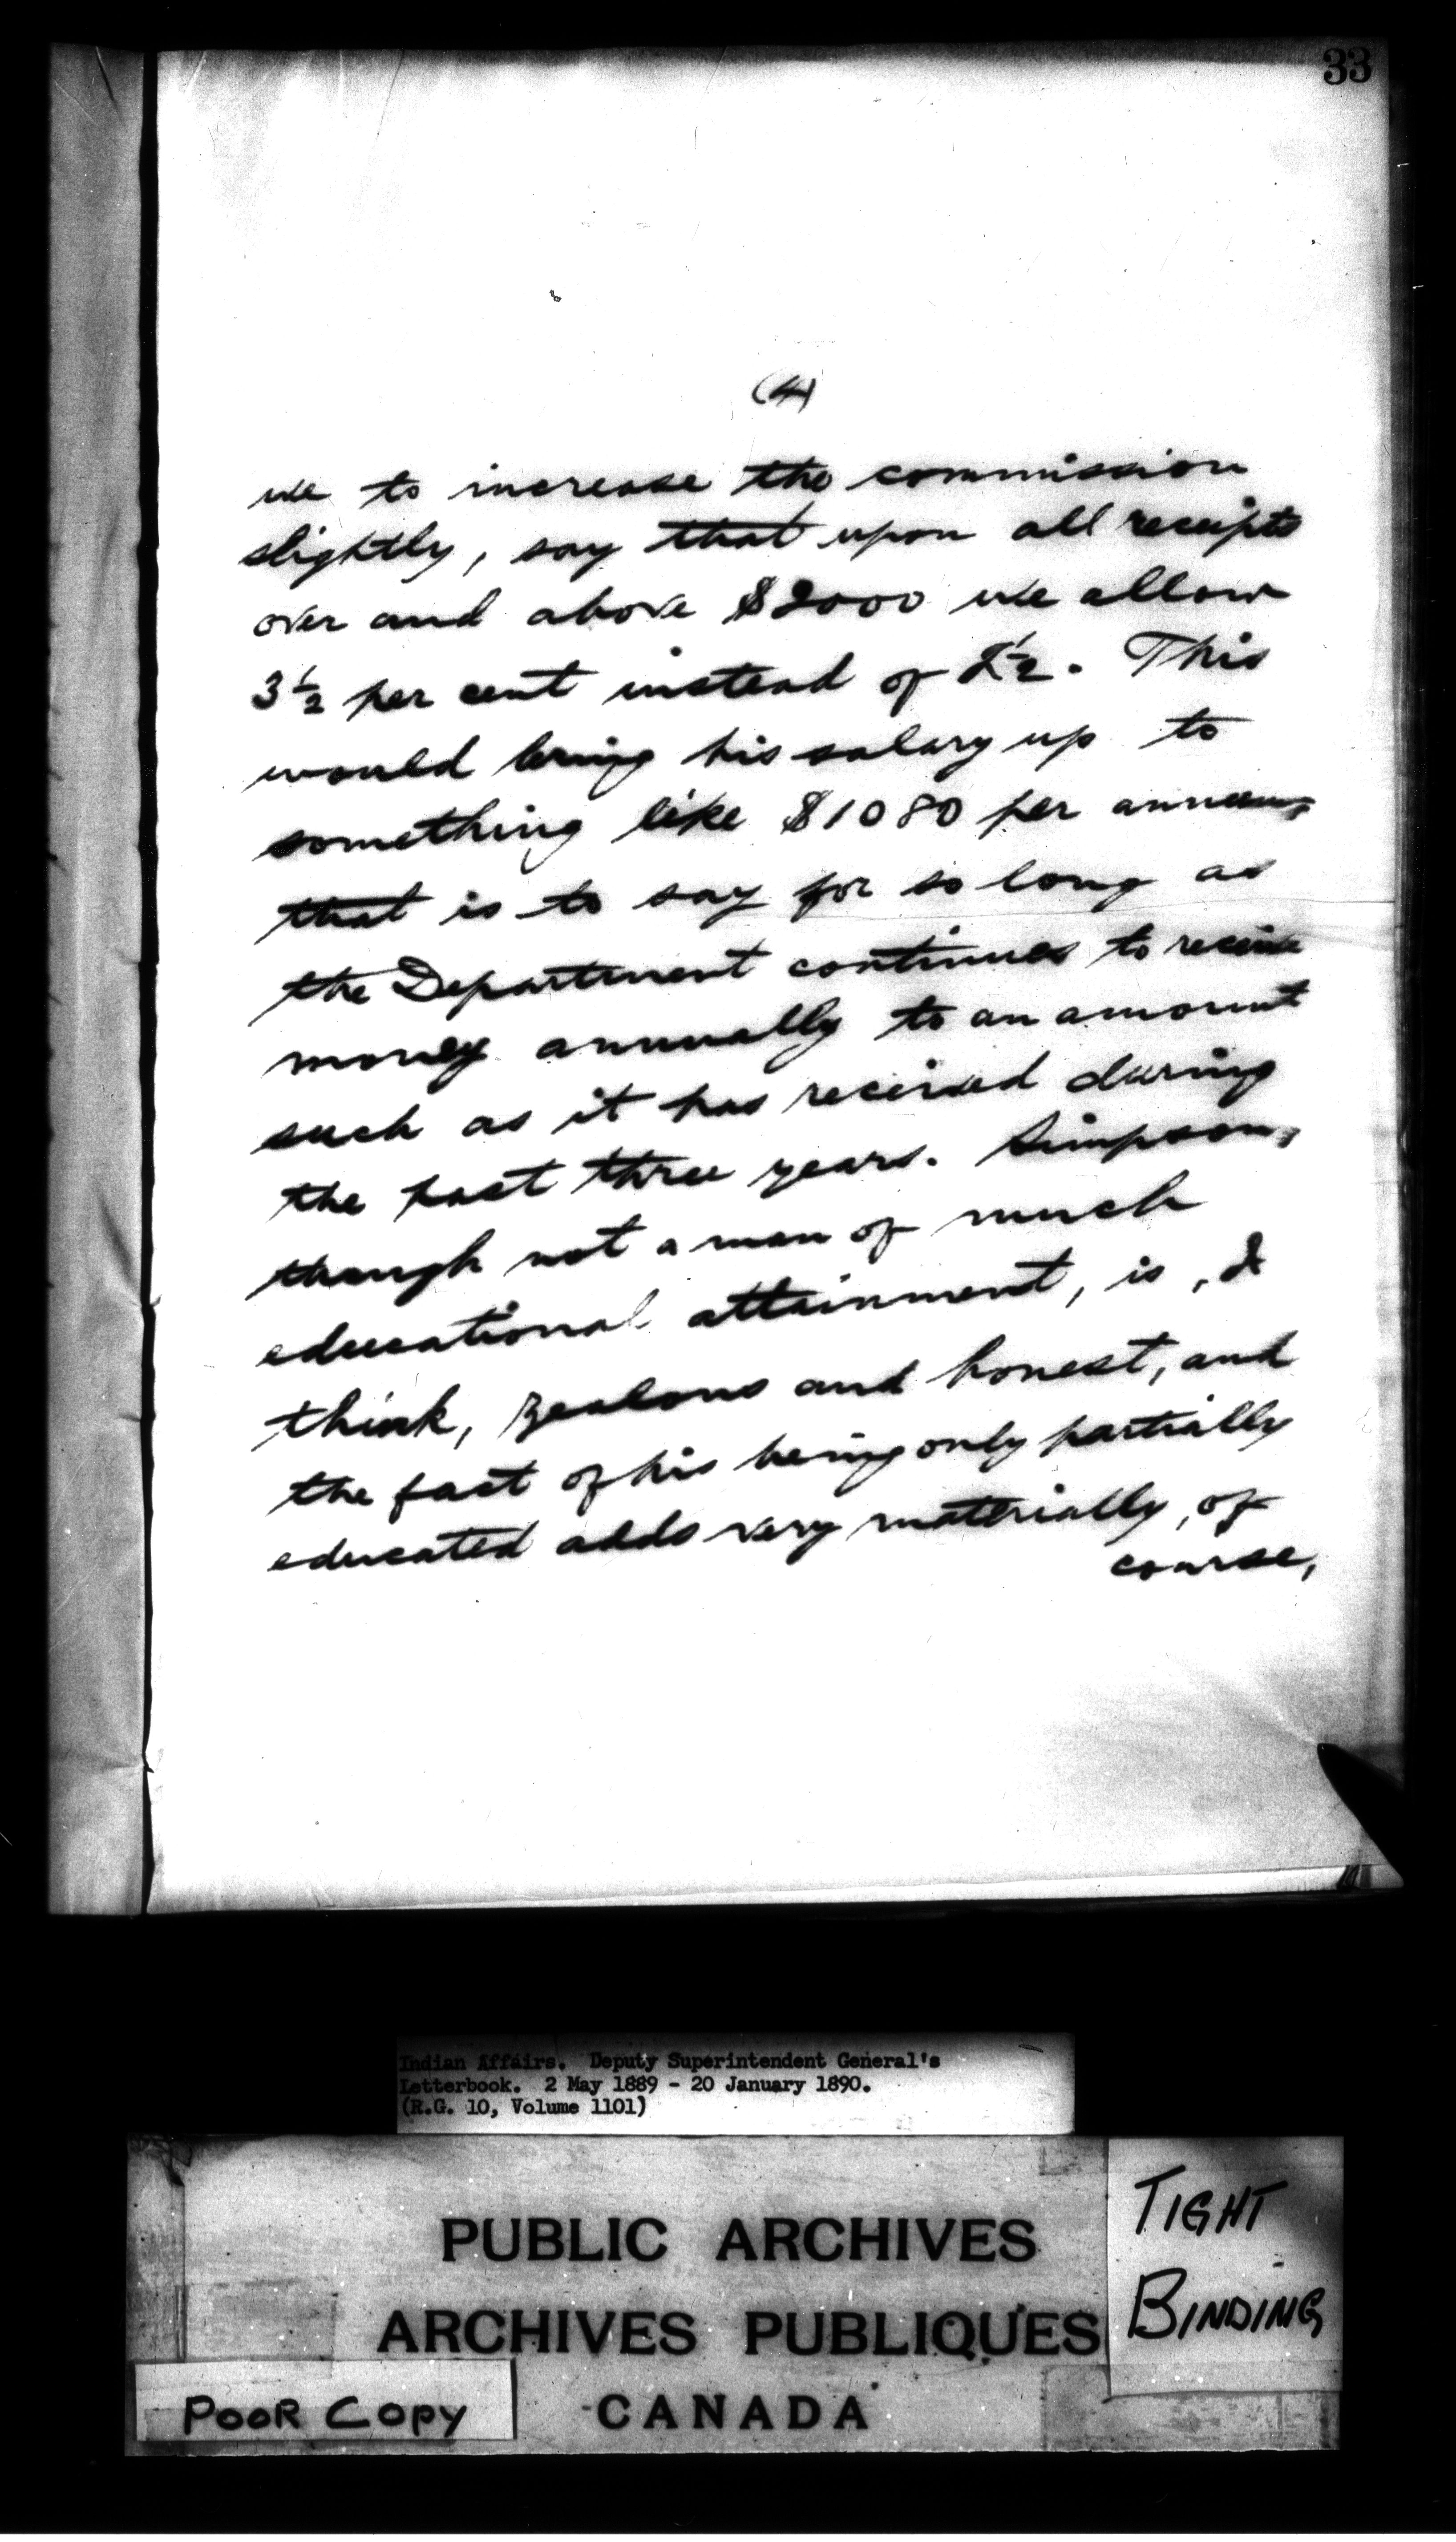 33
(4)
we to increase the commission
slightly, say that upon all receipts
over and above $2000 we allow
3½ per cent instead of 2½. This
would bring his salary up to
something like $1080 per annum,
that is to say for so long as
the Department continues to receive
money annually to an amount
such as it has received during
the past three years. Simpson,
though not a man of much
educational attainment, is, I
think, zealous and honest, and
the fact of his being only partially
educated adds very materially, of
course,
Indian Affairs. Deputy Superintendent General's
Letterbook. 2 May 1889 - 20 January 1890.
(R.G. 10, Volume 1101)
PUBLIC ARCHIVES
ARCHIVES PUBLIQUES
CANADA
TIGHT
BINDING
POOR COPY